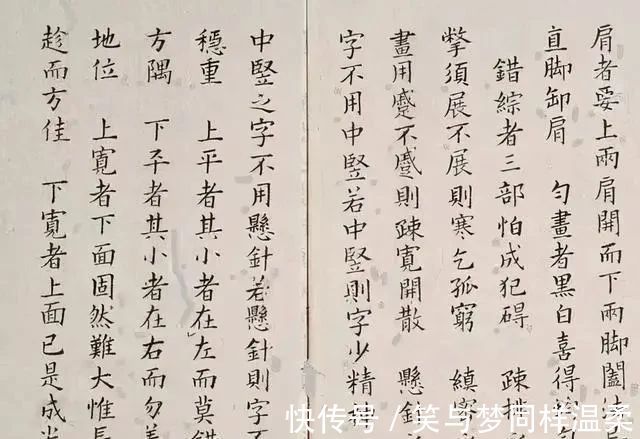 肩者妥上兩肩開而下兩脚闔
直脚卸肩　勻畫者黑白喜得
錯綜者三部怕成犯碍　疎
撆須展不展則寒乞孤窮　縝
畫用蹙不蹙則疎寬開散　懸
字不用中竪若中竪則字少精
中竪之字不用懸針若懸針則字不
穩重　上平者其小者在左而莫錯
方隅　下平者其小者在右而勿
地位　上寬者下面固然難大惟長
趁而方佳　下寬者上面已是成
快传号／笑与梦同样温柔